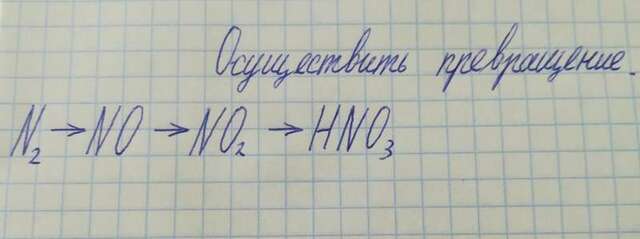 Осуществить превращение.
N₂ → NO → NO₂ → HNO₃